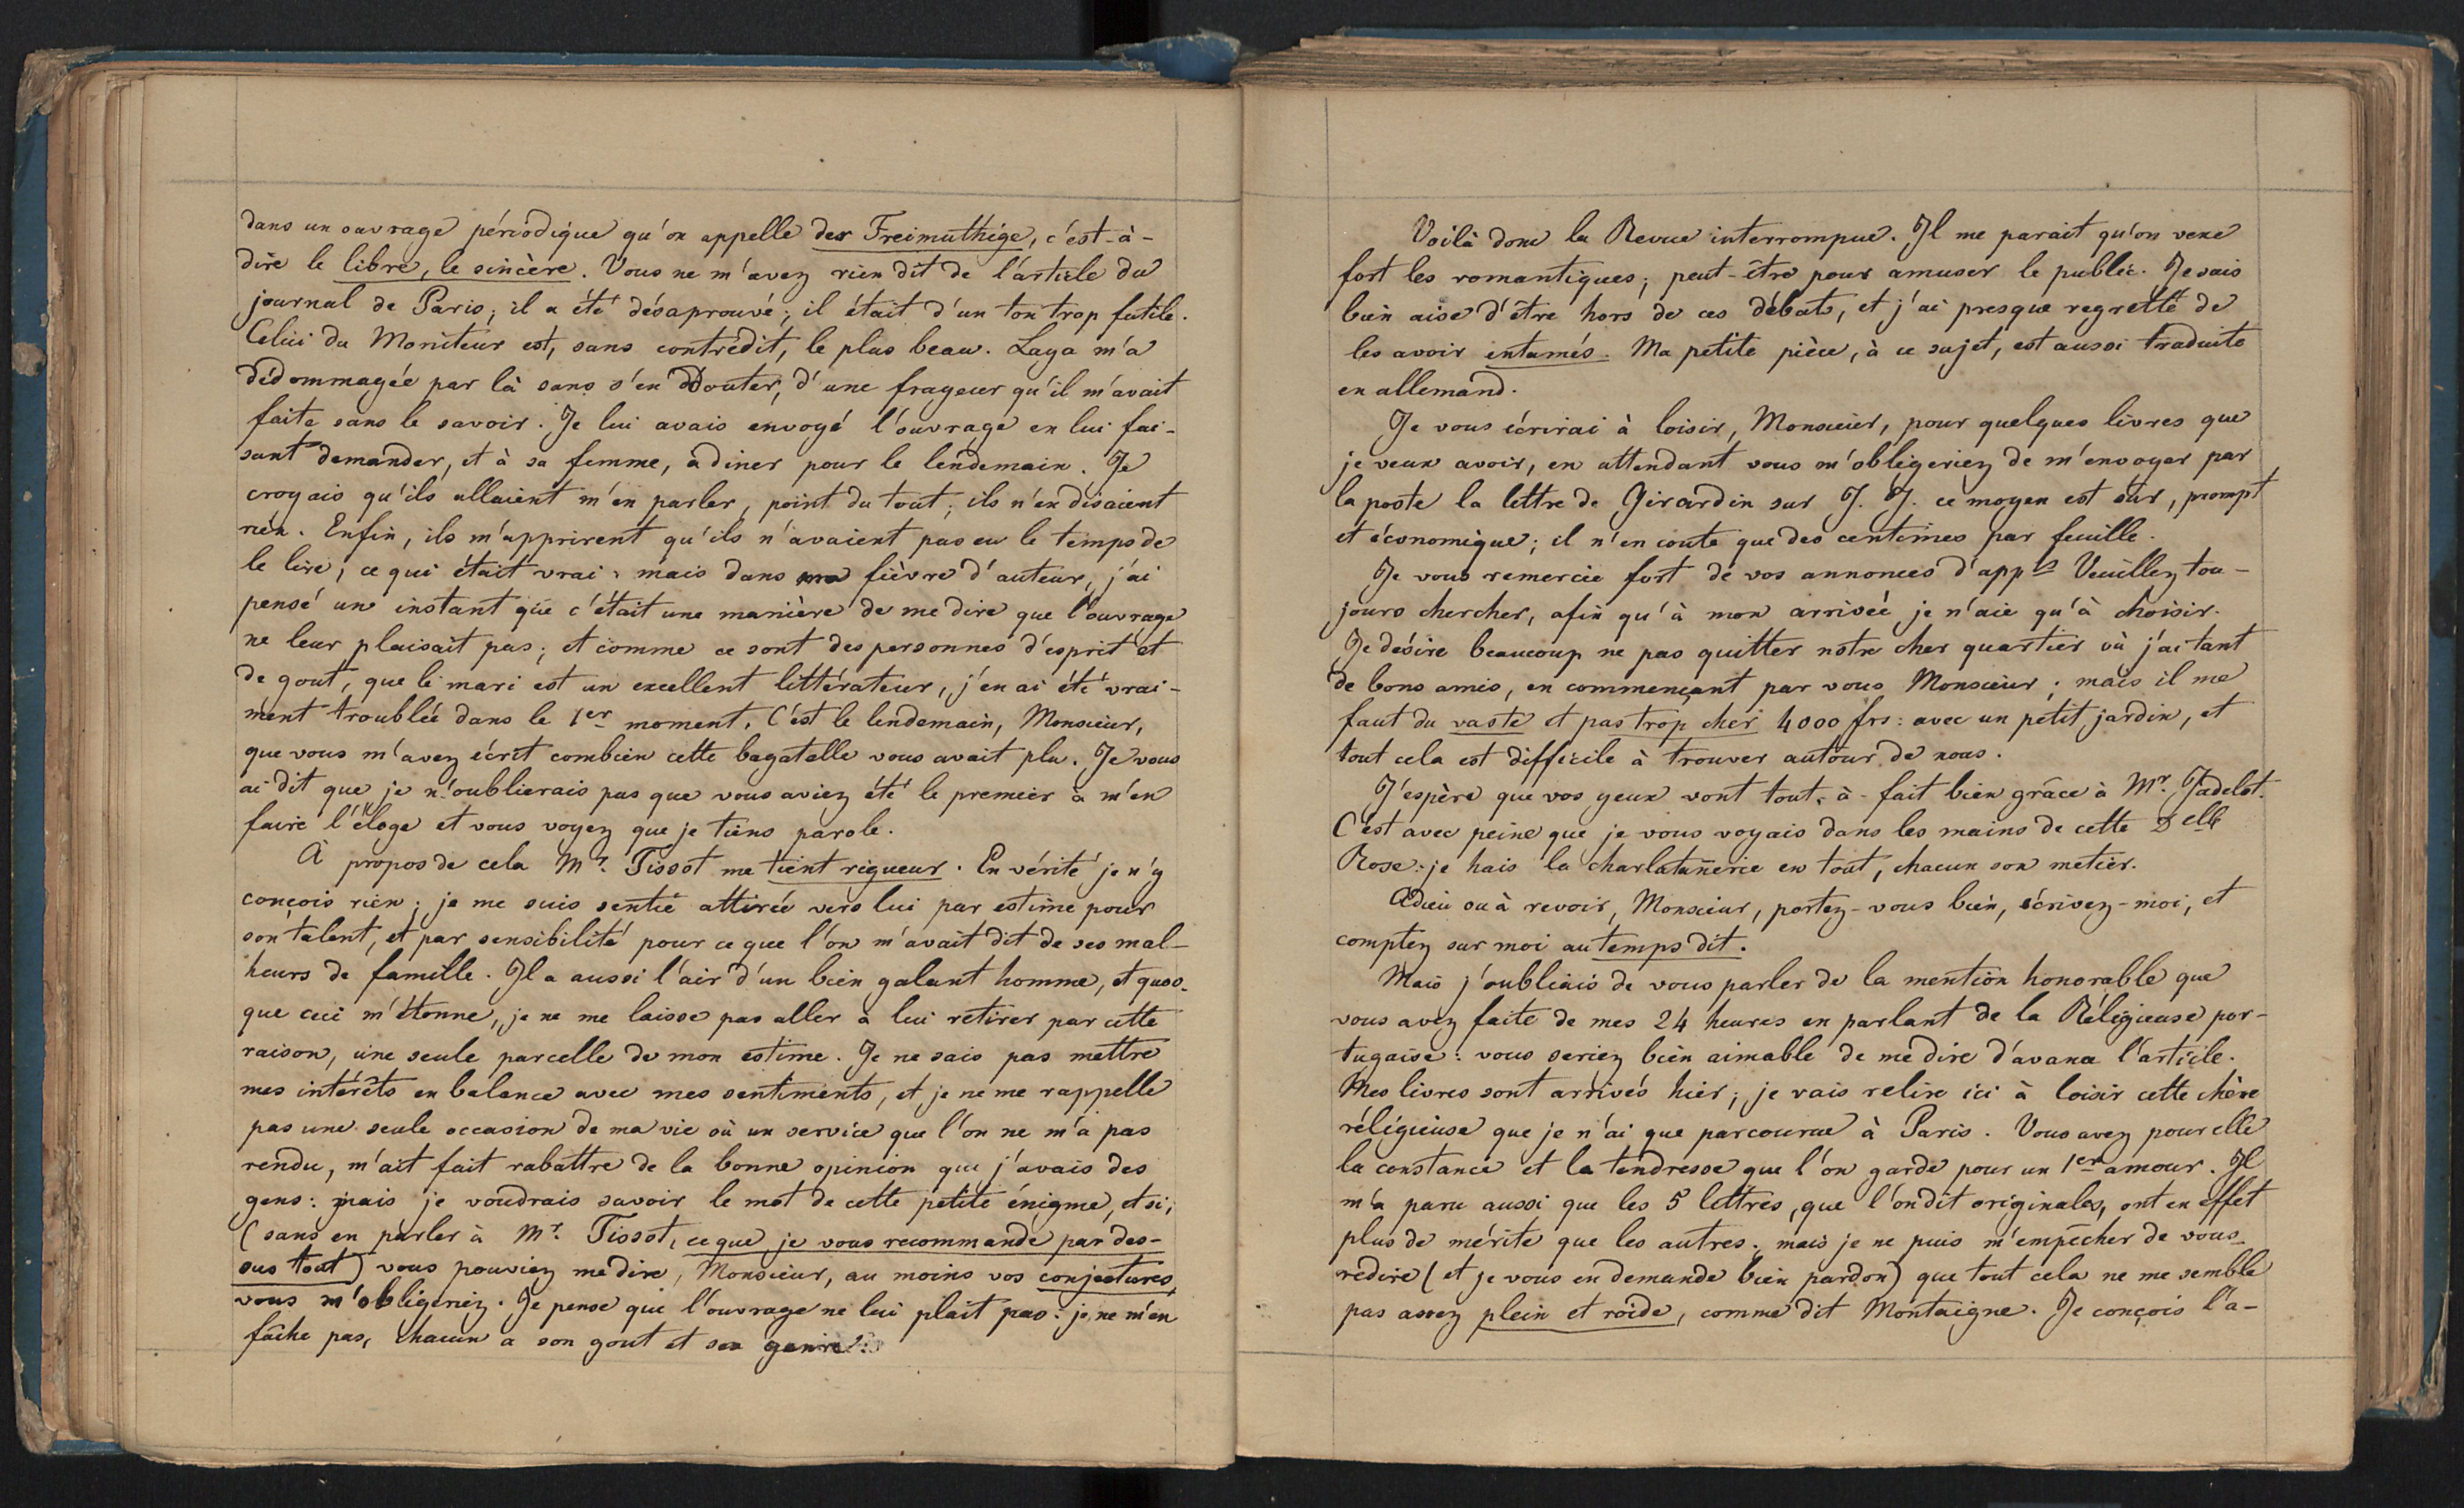 dans un ouvrage périodique qu'on appelle der Freimuthige, c'est-à-
dire le libre, le sincère. Vous ne m'avez rien dit de l'article du
journal de Paris; il a été désaprouvé; il était d'un ton trop futile.
Celui du Moniteur est, sans contredit, le plus beau. Laya m'a
dédommagée par là sans s'en douter, d'une frayeur qu'il m'avait
faite sans le savoir. Je lui avais envoyé l'ouvrage en lui fai-
sant demander, et à sa femme, à diner pour le lendemain. Je
croyais qu'ils allaient m'en parler, point du tout; ils n'en disaient
rien. Enfin, ils m'apprirent qu'ils n'avaient pas eu le temps de
le lire; ce qui était vrai; mais dans ma fièvre d'auteur, j'ai
pensé un instant que c'était une manière de me dire que l'ouvrage
ne leur plaisait pas; et comme ce sont des personnes d'esprit et
de gout, que le mari est un excellent littérateur, j'en ai été vrai-
ment troublée dans le 1er moment. C'est le lendemain, Monsieur,
que vous m'avez écrit combien cette bagatelle vous avait plu. Je vous
ai dit que je n'oublierais pas que vous aviez été le premier à m'en
faire l'éloge et vous voyez que je tiens parole.
À propos de cela Mr. Tissot me tient rigueur. En vérité je n'y
conçois rien; je me suis sentie attirée vers lui par estime pour
son talent, et par sensibilité pour ce que l'on m'avait dit de ses mal-
heurs de famille. Il a aussi l'air d'un bien galant homme, et quoi-
que ceci m'étonne, je ne me laisse pas aller à lui retirer par cette
raison, une seule parcelle de mon estime. Je ne sais pas mettre
mes intérêts en balance avec mes sentiments, et je ne me rappelle
pas une seule occasion de ma vie où un service que l'on ne m'a pas
rendu, m'ait fait rabattre de la bonne opinion que j'avais des
gens: mais je voudrais savoir le mot de cette petite énigme, et si,
(sans en parler à Mr. Tissot, ce que je vous recommande par des-
sus tout) vous pouviez me dire, Monsieur, au moins vos conjectures,
vous m'obligeriez. Je pense que l'ouvrage ne lui plait pas: je ne m'en
fâche pas, chacun a son gout et son genre.
Voilà donc la Revue interrompue. Il me parait qu'on vexe
fort les romantiques; peut-être pour amuser le public. Je suis
bien aise d'être hors de ces débats, et j'ai presque regretté de
les avoir entamés. Ma petite pièce, à ce sujet, est aussi traduite
en allemand.
Je vous écrirai à loisir, Monsieur, pour quelques livres que
je veux avoir, en attendant vous m'obligeriez de m'envoyer par
la poste la lettre de Girardin sur J. J. ce moyen est sûr, prompt
et économique; il n'en coute que des centimes par feuille.
Je vous remercie fort de vos annonces d'appts Veuillez tou-
jours chercher, afin qu'à mon arrivée je n'aie qu'à choisir.
Je désire beaucoup ne pas quitter notre cher quartier où j'ai tant
de bons amis, en commençant par vous Monsieur; mais il me
faut du vaste et pas trop cher 4000 frs: avec un petit jardin, et
tout cela est difficile à trouver autour de nous.
J'espère que vos yeux vont tout-à-fait bien grâce à Mr. Jadelot.
C'est avec peine que je vous voyais dans les mains de cette Delle
Rose: je hais la charlatanerie en tout, chacun son metier.
Adieu ou à revoir, Monsieur, portez-vous bien, écrivez-moi, et
comptez sur moi au temps dit.
Mais j'oubliais de vous parler de la mention honorable que
vous avez faite de mes 24 heures en parlant de la Réligieuse por-
tugaise: vous seriez bien aimable de me dire d'avance l'article.
Mes livres sont arrivés hier; je vais relire ici à loisir cette chère
réligieuse que je n'ai que parcourue à Paris. Vous avez pour elle
la constance et la tendresse que l'on garde pour un 1er amour. Il
m'a paru aussi que les 5 lettres, que l'on dit originales, ont en effet
plus de mérite que les autres; mais je ne puis m'empêcher de vous
redire (et je vous en demande bien pardon) que tout cela ne me semble
pas assez plein et roide, comme dit Montaigne. Je conçois l'a-